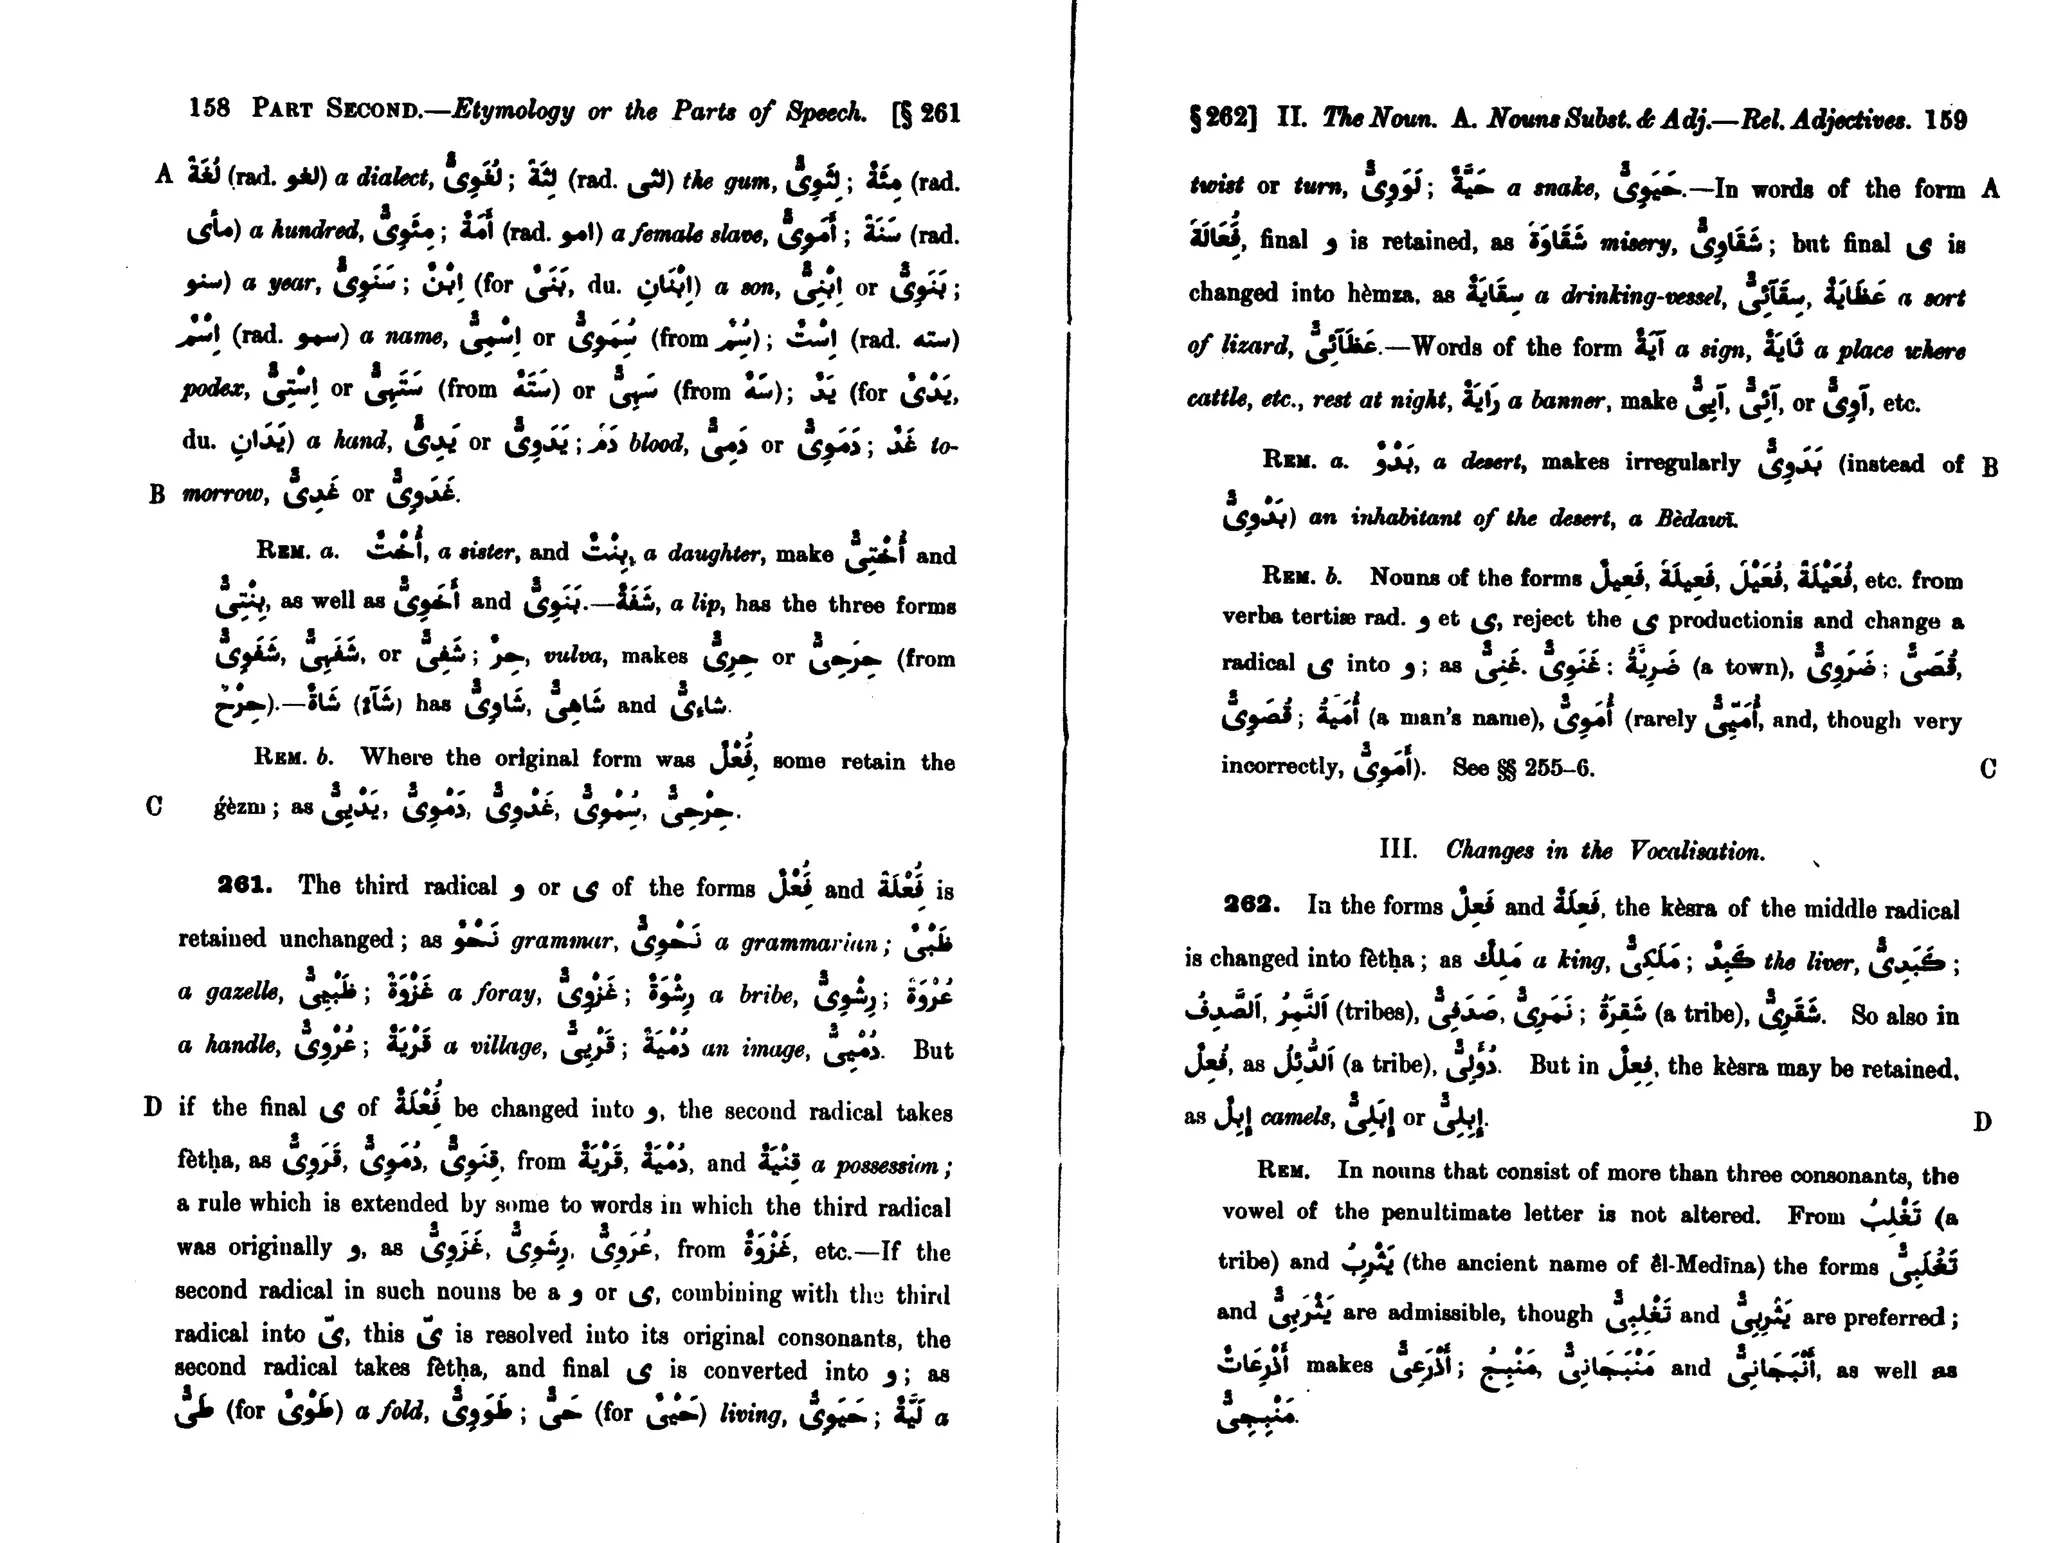 158 PART SECOND.—Etymology or the Parts of Speech. [§ 261
A لُغَةٌ (rad. لغو) a dialect, لُغَوِىٌّ ; لِثَةٌ (rad. لثى) the gum, لِثَوِىٌّ ; مِئَةٌ (rad.
مأى) a hundred, مِئَوِىٌّ ; أَمَةٌ (rad. امو) a female slave, أَمَوِىٌّ ; سَنَةٌ (rad.
سنو) a year, سَنَوِىٌّ ; اِبْنٌ (for بَنَىٌ, du. اِبْنَانِ) a son, اِبْنِىٌّ or بَنَوِىٌّ ;
اِسْمٌ (rad. سمو) a name, اِسْمِىٌّ or سُمَوِىٌّ (from سُمٌ) ; اِسْتٌ (rad. سته)
podex, اِسْتِىٌّ or سَتَهِىٌّ (from سَتَهٌ) or سَهِىٌّ (from سَهٌ); يَدٌ (for يَدْىٌ,
du. يَدَانِ) a hand, يَدِىٌّ or يَدَوِىٌّ ; دَمٌ blood, دَمِىٌّ or دَمَوِىٌّ ; غَدٌ to-
B morrow, غَدِىٌّ or غَدَوِىٌّ.
REM. a. أُخْتٌ, a sister, and بِنْتٌ, a daughter, make أُخْتِىٌّ and
بِنْتِىٌّ, as well as أَخَوِىٌّ and بَنَوِىٌّ.—شَفَةٌ, a lip, has the three forms
شَفَوِىٌّ, شَفَهِىٌّ, or شَفِىٌّ ; حِرٌ, vulva, makes حِرِىٌّ or حِرَحِىٌّ (from
حِرْحٌ).—شَاةٌ (شَآءٌ) has شَاوِىٌّ, شَاهِىٌّ and شَاءِىٌّ.
REM. b. Where the original form was فَعْلٌ, some retain the
C ǵèzm ; as يَدْيِىٌّ, دَمْوِىٌّ, غَدْوِىٌّ, سُمْوِىٌّ, حِرْحِىٌّ.
261. The third radical و or ى of the forms فَعْلٌ and فَعْلَةٌ is
retained unchanged ; as نَحْوٌ grammar, نَحْوِىٌّ a grammarian ; ظَبْىٌ
a gazelle, ظَبْيِىٌّ ; غَزْوَةٌ a foray, غَزْوِىٌّ ; رِشْوَةٌ a bribe, رِشْوِىٌّ ; عُرْوَةٌ
a handle, عُرْوِىٌّ ; قَرْيَةٌ a village, قَرْيِىٌّ ; دُمْيَةٌ an image, دُمْيِىٌّ. But
D if the final ى of فَعْلَةٌ be changed into و, the second radical takes
fètḥa, as قَرَوِىٌّ, دُمَوِىٌّ, قِنَوِىٌّ, from قَرْيَةٌ, دُمْيَةٌ, and قِنْيَةٌ a possession ;
a rule which is extended by some to words in which the third radical
was originally و, as غَزَوِىٌّ, رِشَوِىٌّ, عُرَوِىٌّ, from غَزْوَةٌ, etc.—If the
second radical in such nouns be a و or ى, combining with the third
radical into ىّ, this ىّ is resolved into its original consonants, the
second radical takes fètḥa, and final ى is converted into و ; as
طَىٌّ (for طَوْىٌ) a fold, طَوَوِىٌّ ; حَىٌّ (for حَيْىٌ) living, حَيَوِىٌّ ; لَيَّةٌ a
§ 262] II. The Noun. A. Nouns Subst. & Adj.—Rel. Adjectives. 159
twist or turn, لَوَوِىٌّ ; حَيَّةٌ a snake, حَيَوِىٌّ.—In words of the form A
فَعَالَةٌ, final و is retained, as شَقَاوَةٌ misery, شَقَاوِىٌّ ; but final ى is
changed into hèmza, as سِقَايَةٌ a drinking-vessel, سِقَآئِىٌّ, عَظَايَةٌ a sort
of lizard, عَظَآئِىٌّ.—Words of the form آيَةٌ a sign, ثَايَةٌ a place where
cattle, etc., rest at night, رَايَةٌ a banner, make آيِىٌّ, آئِىٌّ, or آوِىٌّ, etc.
REM. a. بَدْوٌ, a desert, makes irregularly بَدَوِىٌّ (instead of B
بَدْوِىٌّ) an inhabitant of the desert, a Bèdawī.
REM. b. Nouns of the forms فَعِيلٌ, فَعِيلَةٌ, فُعَيْلٌ, فُعَيْلَةٌ, etc. from
verba tertiæ rad. و et ى, reject the ى productionis and change a
radical ى into و ; as غَنِىٌّ, غَنَوِىٌّ ; ضَرِيَّةٌ (a town), ضَرَوِىٌّ ; قُصَىٌّ,
قُصَوِىٌّ ; أُمَيَّةُ (a man's name), أُمَوِىٌّ (rarely أُمَيِّىٌّ, and, though very
incorrectly, أَمَوِىٌّ). See §§ 255–6. C
III. Changes in the Vocalisation.
262. In the forms فَعِلٌ and فَعِلَةٌ, the kèsra of the middle radical
is changed into fètḥa ; as مَلِكٌ a king, مَلَكِىٌّ ; كَبِدٌ the liver, كَبَدِىٌّ ;
اَلصَّدِفُ, اَلنَّمِرُ (tribes), صَدَفِىٌّ, نَمَرِىٌّ ; شَقِرَةُ (a tribe), شَقَرِىٌّ. So also in
فُعِلٌ, as اَلدُّئِلُ (a tribe), دُؤَلِىٌّ. But in فِعِلٌ, the kèsra may be retained,
as إِبِلٌ camels, إِبَلِىٌّ or إِبِلِىٌّ. D
REM. In nouns that consist of more than three consonants, the
vowel of the penultimate letter is not altered. From تَغْلِبُ (a
tribe) and يَثْرِبُ (the ancient name of êl-Medīna) the forms تَغْلَبِىٌّ
and يَثْرَبِىٌّ are admissible, though تَغْلِبِىٌّ and يَثْرِبِىٌّ are preferred ;
أَذْرِعَاتٌ makes أَذْرَعِىٌّ ; مَنْبِجُ, مَنْبَجَانِىٌّ and أَنْبَجَانِىٌّ, as well as
مَنْبِجِىٌّ.